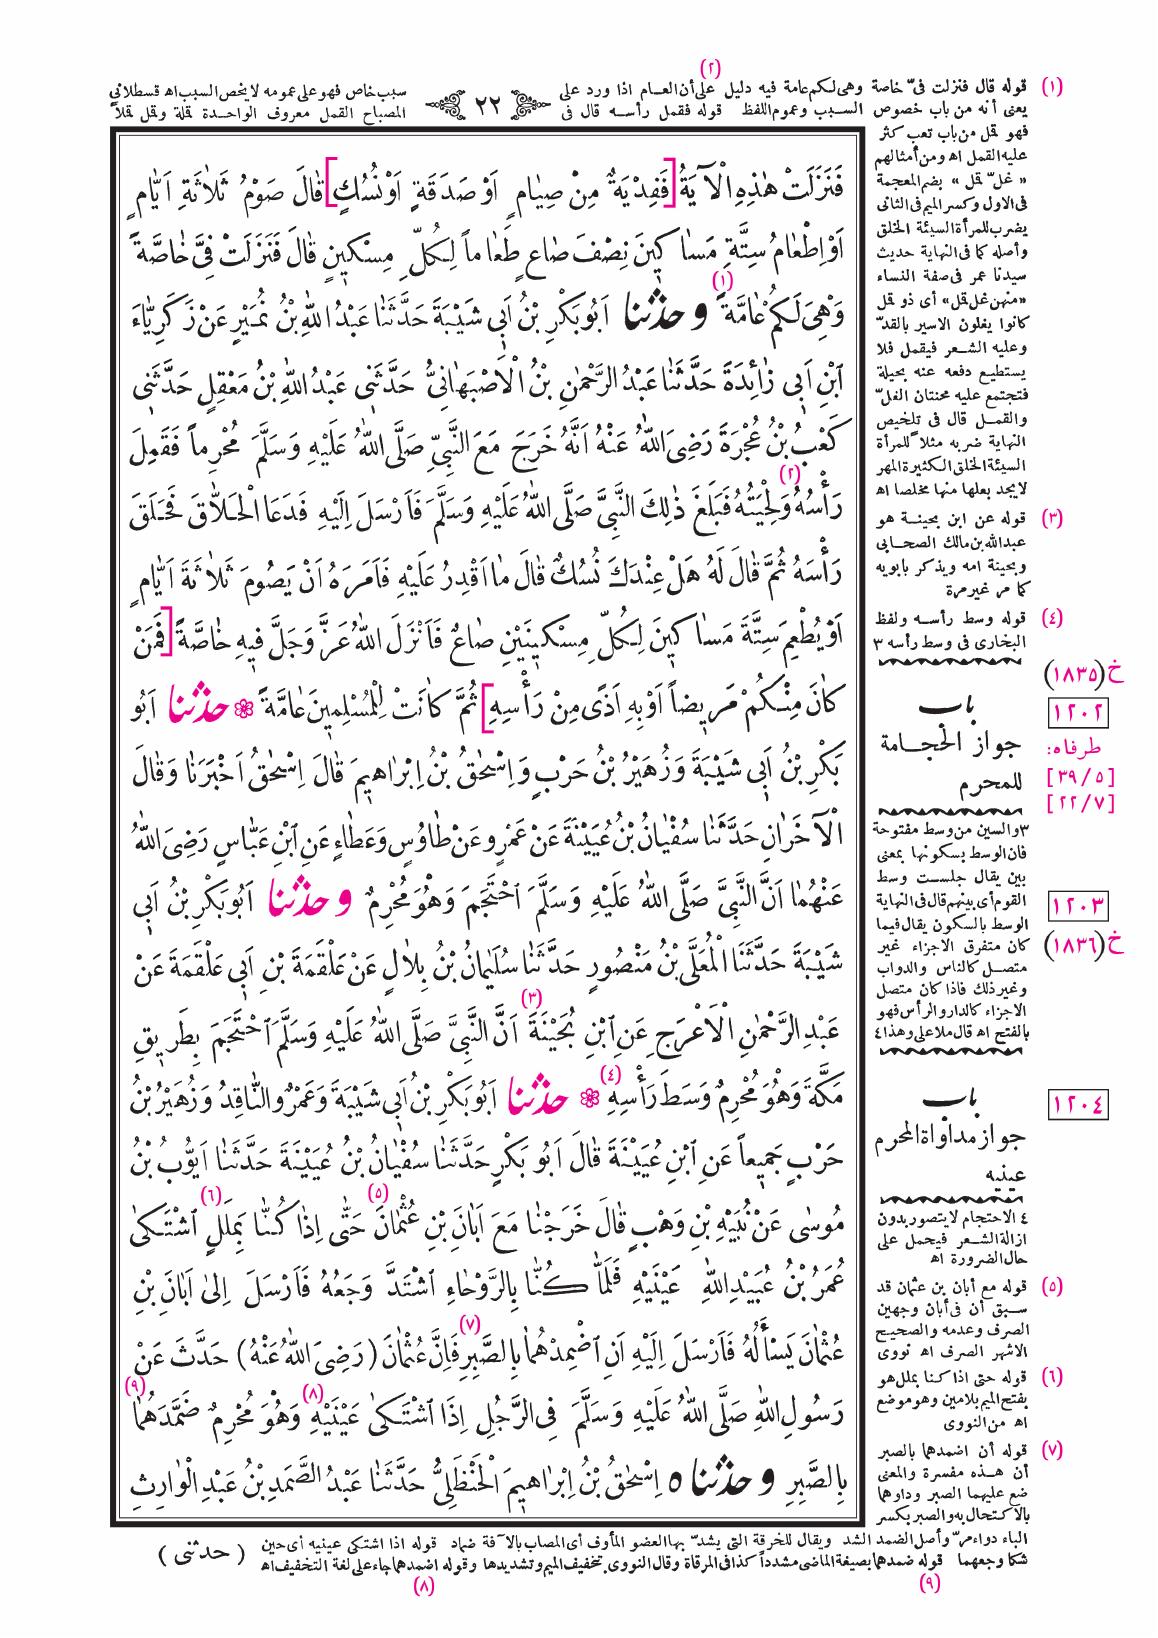 (٢)
(١) قوله قال فنزلت فىّ خاصة وهى لكم عامة فيه دليل على أن العام اذا ورد على
﴿ ٢٢ ﴾
سبب خاص فهو على عمومه لا يخص السبب اه قسطلانى
يعنى أنه من باب خصوص السبب وعموم اللفظ قوله فقمل رأسه قال فى
المصباح القمل معروف الواحدة قملة وقمل قملاً
فهو قمل من باب تعب كثر
عليه القمل اه ومن أمثالهم
« غلّ قمل » بضم المعجمة
فى الاول وكسر الميم فى الثانى
يضرب للمرأة السيئة الخلق
وأصله كما فى النهاية حديث
سيدنا عمر فى صفة النساء
«منهن غل قمل» أى ذو قمل
كانوا يغلون الاسير بالقدّ
وعليه الشعر فيقمل فلا
يستطيع دفعه عنه بحيلة
فتجتمع عليه محنتان الغلّ
والقمل قال فى تلخيص
النهاية ضربه مثلا للمرأة
السيئة الخلق الكثيرة المهر
لا يجد بعلها منها مخلصا اه
(٣) قوله عن ابن بحينة هو
عبدالله بن مالك الصحابى
وبحينة امه ويذكر بابويه
كما مر غير مرة
(٤) قوله وسط رأسه ولفظ
البخارى فى وسط رأسه ٣
خ (١٨٣٥)
باب
١٢٠٢
جواز الحجامة
للمحرم
طرفاه:
[٣٩/٥]
[٢٢/٧]
٣ والسين من وسط مفتوحة
فان الوسط بسكونها بمعنى
بين يقال جلست وسط
القوم أى بينهم قال فى النهاية
الوسط بالسكون يقال فيما
كان متفرق الاجزاء غير
متصل كالناس والدواب
وغير ذلك فاذا كان متصل
الاجزاء كالدار والرأس فهو
بالفتح اه قال ملا على وهذا ٤
١٢٠٣
خ (١٨٣٦)
باب
١٢٠٤
جواز مداواة المحرم
عينيه
٤ الاحتجام لا يتصور بدون
ازالة الشعر فيحمل على
حال الضرورة اه
(٥) قوله مع أبان بن عثمان قد
سبق أن فى أبان وجهين
الصرف وعدمه والصحيح
الاشهر الصرف اه نووى
(٦) قوله حتى اذا كنا بملل هو
بفتح الميم بلامين وهو موضع
اه من النووى
(٧) قوله أن اضمدهما بالصبر
أن هذه مفسرة والمعنى
ضع عليهما الصبر وداوهما
بالاكتحال به والصبر بكسر
فَنَزَلَتْ هٰذِهِ الْآيَةُ [فَفِدْيَةٌ مِنْ صِيَامٍ اَوْ صَدَقَةٍ اَوْ نُسُكٍ] قَالَ صَوْمُ ثَلَاثَةِ اَيَّامٍ
اَوْ اِطْعَامُ سِتَّةِ مَسَاكِينَ نِصْفَ صَاعٍ طَعَاماً لِكُلِّ مِسْكِينٍ قَالَ فَنَزَلَتْ فِىَّ خَاصَّةً
وَهْىَ لَكُمْ عَامَّةً (١) وحدثنا اَبُو بَكْرِ بْنُ اَبِى شَيْبَةَ حَدَّثَنَا عَبْدُ اللهِ بْنُ نُمَيْرٍ عَنْ زَكَرِيَّاءَ
ابْنِ اَبِى زَائِدَةَ حَدَّثَنَا عَبْدُ الرَّحْمٰنِ بْنُ الْاَصْبَهَانِىُّ حَدَّثَنِى عَبْدُ اللهِ بْنُ مَعْقِلٍ حَدَّثَنِى
كَعْبُ بْنُ عُجْرَةَ رَضِىَ اللهُ عَنْهُ اَنَّهُ خَرَجَ مَعَ النَّبِىِّ صَلَّى اللهُ عَلَيْهِ وَسَلَّمَ مُحْرِماً فَقَمِلَ
رَأْسُهُ وَلِحْيَتُهُ (٢) فَبَلَغَ ذٰلِكَ النَّبِىَّ صَلَّى اللهُ عَلَيْهِ وَسَلَّمَ فَاَرْسَلَ اِلَيْهِ فَدَعَا الْحَلَّاقَ فَحَلَقَ
رَأْسَهُ ثُمَّ قَالَ لَهُ هَلْ عِنْدَكَ نُسُكٌ قَالَ مَا اَقْدِرُ عَلَيْهِ فَاَمَرَهُ اَنْ يَصُومَ ثَلَاثَةَ اَيَّامٍ
اَوْ يُطْعِمَ سِتَّةَ مَسَاكِينَ لِكُلِّ مِسْكِينَيْنِ صَاعٌ فَاَنْزَلَ اللهُ عَزَّ وَجَلَّ فِيهِ خَاصَّةً [فَمَنْ
كَانَ مِنْكُمْ مَرِيضاً اَوْ بِهِ اَذًى مِنْ رَأْسِهِ] ثُمَّ كَانَتْ لِلْمُسْلِمِينَ عَامَّةً ❁ حدثنا اَبُو
بَكْرِ بْنُ اَبِى شَيْبَةَ وَزُهَيْرُ بْنُ حَرْبٍ وَاِسْحٰقُ بْنُ اِبْرَاهِيمَ قَالَ اِسْحٰقُ اَخْبَرَنَا وَقَالَ
الْآخَرَانِ حَدَّثَنَا سُفْيَانُ بْنُ عُيَيْنَةَ عَنْ عَمْرٍو عَنْ طَاوُسٍ وَعَطَاءٍ عَنِ ابْنِ عَبَّاسٍ رَضِىَ اللهُ
عَنْهُمَا اَنَّ النَّبِىَّ صَلَّى اللهُ عَلَيْهِ وَسَلَّمَ احْتَجَمَ وَهْوَ مُحْرِمٌ وحدثنا اَبُو بَكْرِ بْنُ اَبِى
شَيْبَةَ حَدَّثَنَا الْمُعَلَّى بْنُ مَنْصُورٍ حَدَّثَنَا سُلَيْمَانُ بْنُ بِلَالٍ عَنْ عَلْقَمَةَ بْنِ اَبِى عَلْقَمَةَ عَنْ
عَبْدِ الرَّحْمٰنِ الْاَعْرَجِ عَنِ ابْنِ بُحَيْنَةَ (٣) اَنَّ النَّبِىَّ صَلَّى اللهُ عَلَيْهِ وَسَلَّمَ احْتَجَمَ بِطَرِيقِ
مَكَّةَ وَهُوَ مُحْرِمٌ وَسَطَ رَأْسِهِ (٤) ❁ حدثنا اَبُو بَكْرِ بْنُ اَبِى شَيْبَةَ وَعَمْرٌو النَّاقِدُ وَزُهَيْرُ بْنُ
حَرْبٍ جَمِيعاً عَنِ ابْنِ عُيَيْنَةَ قَالَ اَبُو بَكْرٍ حَدَّثَنَا سُفْيَانُ بْنُ عُيَيْنَةَ حَدَّثَنَا اَيُّوبُ بْنُ
مُوسٰى عَنْ نُبَيْهِ بْنِ وَهْبٍ قَالَ خَرَجْنَا مَعَ اَبَانَ بْنِ عُثْمَانَ (٥) حَتّٰى اِذَا كُنَّا بِمَلَلٍ (٦) اشْتَكٰى
عُمَرُ بْنُ عُبَيْدِ اللهِ عَيْنَيْهِ فَلَمَّا كُنَّا بِالرَّوْحَاءِ اشْتَدَّ وَجَعُهُ فَاَرْسَلَ اِلٰى اَبَانَ بْنِ
عُثْمَانَ يَسْأَلُهُ فَاَرْسَلَ اِلَيْهِ اَنِ اضْمِدْهُمَا بِالصَّبِرِ (٧) فَاِنَّ عُثْمَانَ ( رَضِىَ اللهُ عَنْهُ ) حَدَّثَ عَنْ
رَسُولِ اللهِ صَلَّى اللهُ عَلَيْهِ وَسَلَّمَ فِى الرَّجُلِ اِذَا اشْتَكٰى عَيْنَيْهِ (٨) وَهُوَ مُحْرِمٌ ضَمَّدَهُمَا (٩)
بِالصَّبِرِ وحدثنا ٥ اِسْحٰقُ بْنُ اِبْرَاهِيمَ الْحَنْظَلِىُّ حَدَّثَنَا عَبْدُ الصَّمَدِ بْنُ عَبْدِ الْوَارِثِ
الباء دواء مرّ وأصل الضمد الشد ويقال للخرقة التى يشدّ بها العضو المأوف أى المصاب بالآفة ضماد قوله اذا اشتكى عينيه أى حين
شكا وجعهما قوله ضمدهما بصيغة الماضى مشدداً كذا فى المرقاة وقال النووى بتخفيف الميم وتشديدها وقوله اضمدهما جاء على لغة التخفيف اه
( حدثنى )
(٩)
(٨)